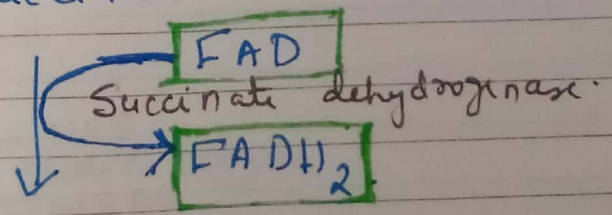 FAD
Succinate dehydrogenase.
FADH2